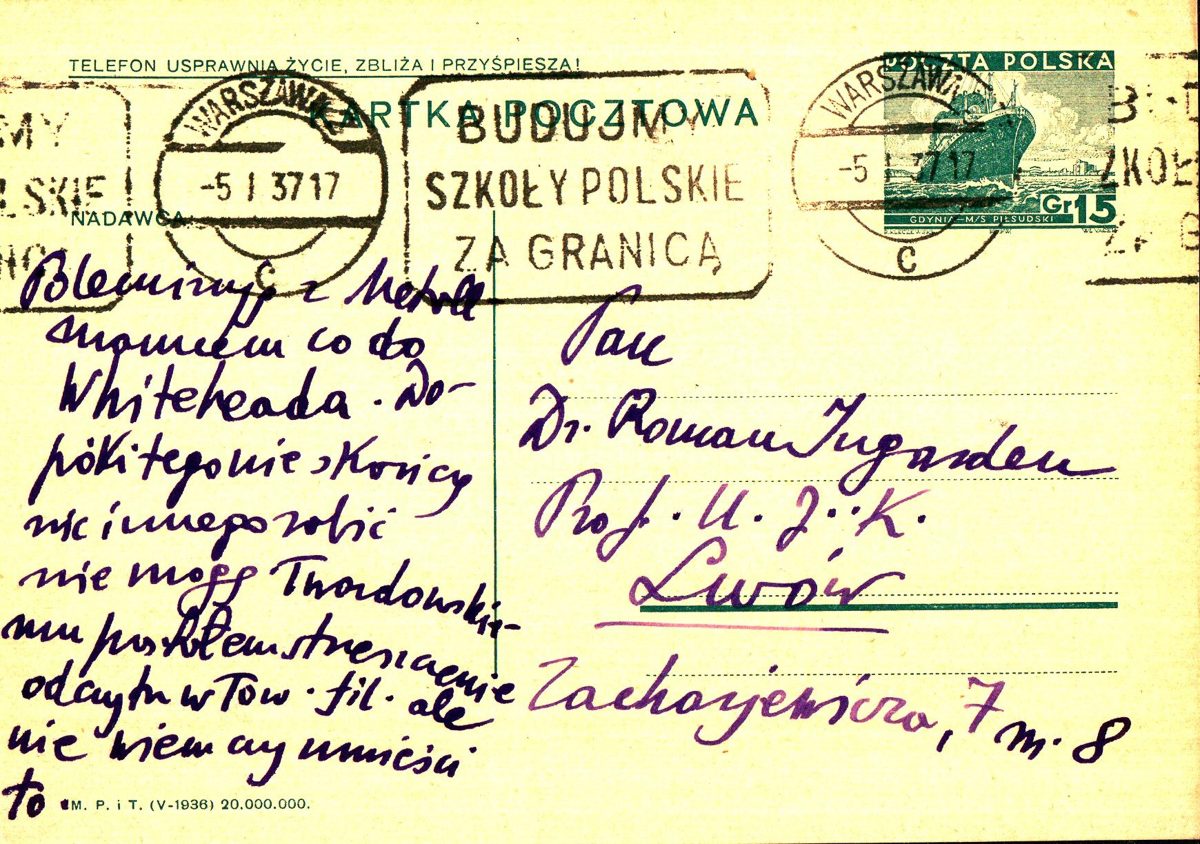 TELEFON USPRAWNIA ŻYCIE, ZBLIŻA I PRZYŚPIESZA!
KARTKA POCZTOWA
POCZTA POLSKA
GDYNIA–M/S PIŁSUDSKI
Gr 15
WARSZAWA
-5 I 37 17
C
BUDUJMY
SZKOŁY POLSKIE
ZA GRANICĄ
WARSZAWA
-5 I 37 17
C
NADAWCA:
Polemizuję z Metall
mannem co do
Whiteheada. Do-
póki tego nie skończę
nic innego robić
nie mogę Twardowskie-
mu posłałem streszczenie
odczytu w Tow. fil. ale
nie wiem czy umieści
to
Pan
Dr. Roman Ingarden
Prof. U. J. K.
Lwów
Zacharjewicza, 7 m. 8
M. P. i T. (V-1936) 20.000.000.